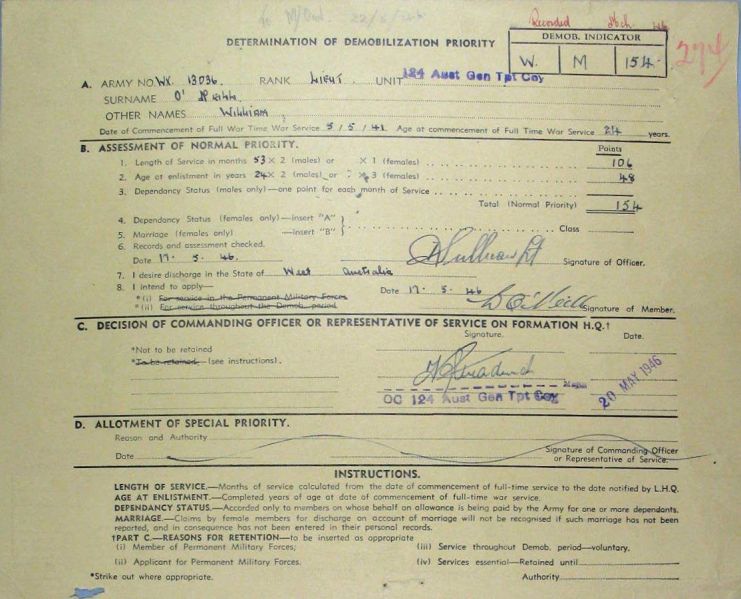 To M/Dem. 22/5/46
Recorded
DETERMINATION OF DEMOBILIZATION PRIORITY
DEMOB. INDICATOR
W. M 154.
274
A. ARMY NO. WX. 13036. RANK LIEUT. UNIT 124 Aust Gen Tpt Coy
SURNAME O'NEILL.
OTHER NAMES WILLIAM
Date of Commencement of Full War Time War Service 5/5/41 Age at commencement of Full Time War Service 24 years.
B. ASSESSMENT OF NORMAL PRIORITY. Points
1. Length of Service in months 53 × 2 (males) or × 1 (females) 106
2. Age at enlistment in years 24 × 2 (males) or × 3 (females) 48
3. Dependancy Status (males only)—one point for each month of Service
Total (Normal Priority) 154
4. Dependancy Status (females only)—insert "A"
Class
5. Marriage (females only) —insert "B"
6. Records and assessment checked.
Date 17. 5. 46. Signature of Officer.
7. I desire discharge in the State of West Australia
8. I intend to apply— Date 17. 5. 46
*(i) For service in the Permanent Military Forces Signature of Member.
*(ii) For service throughout the Demob. period
C. DECISION OF COMMANDING OFFICER OR REPRESENTATIVE OF SERVICE ON FORMATION H.Q.†
Signature. Date.
*Not to be retained
*To be retained (see instructions).
OC 124 Aust Gen Tpt Coy
20 MAY 1946
D. ALLOTMENT OF SPECIAL PRIORITY.
Reason and Authority
Date Signature of Commanding Officer
or Representative of Service.
INSTRUCTIONS.
LENGTH OF SERVICE.—Months of service calculated from the date of commencement of full-time service to the date notified by L.H.Q.
AGE AT ENLISTMENT.—Completed years of age at date of commencement of full-time war service.
DEPENDANCY STATUS.—Accorded only to members on whose behalf an allowance is being paid by the Army for one or more dependants.
MARRIAGE.—Claims by female members for discharge on account of marriage will not be recognised if such marriage has not been
reported, and in consequence has not been entered in their personal records.
†PART C.—REASONS FOR RETENTION—to be inserted as appropriate
(i) Member of Permanent Military Forces; (iii) Service throughout Demob. period—voluntary.
(ii) Applicant for Permanent Military Forces. (iv) Services essential—Retained until
*Strike out where appropriate. Authority